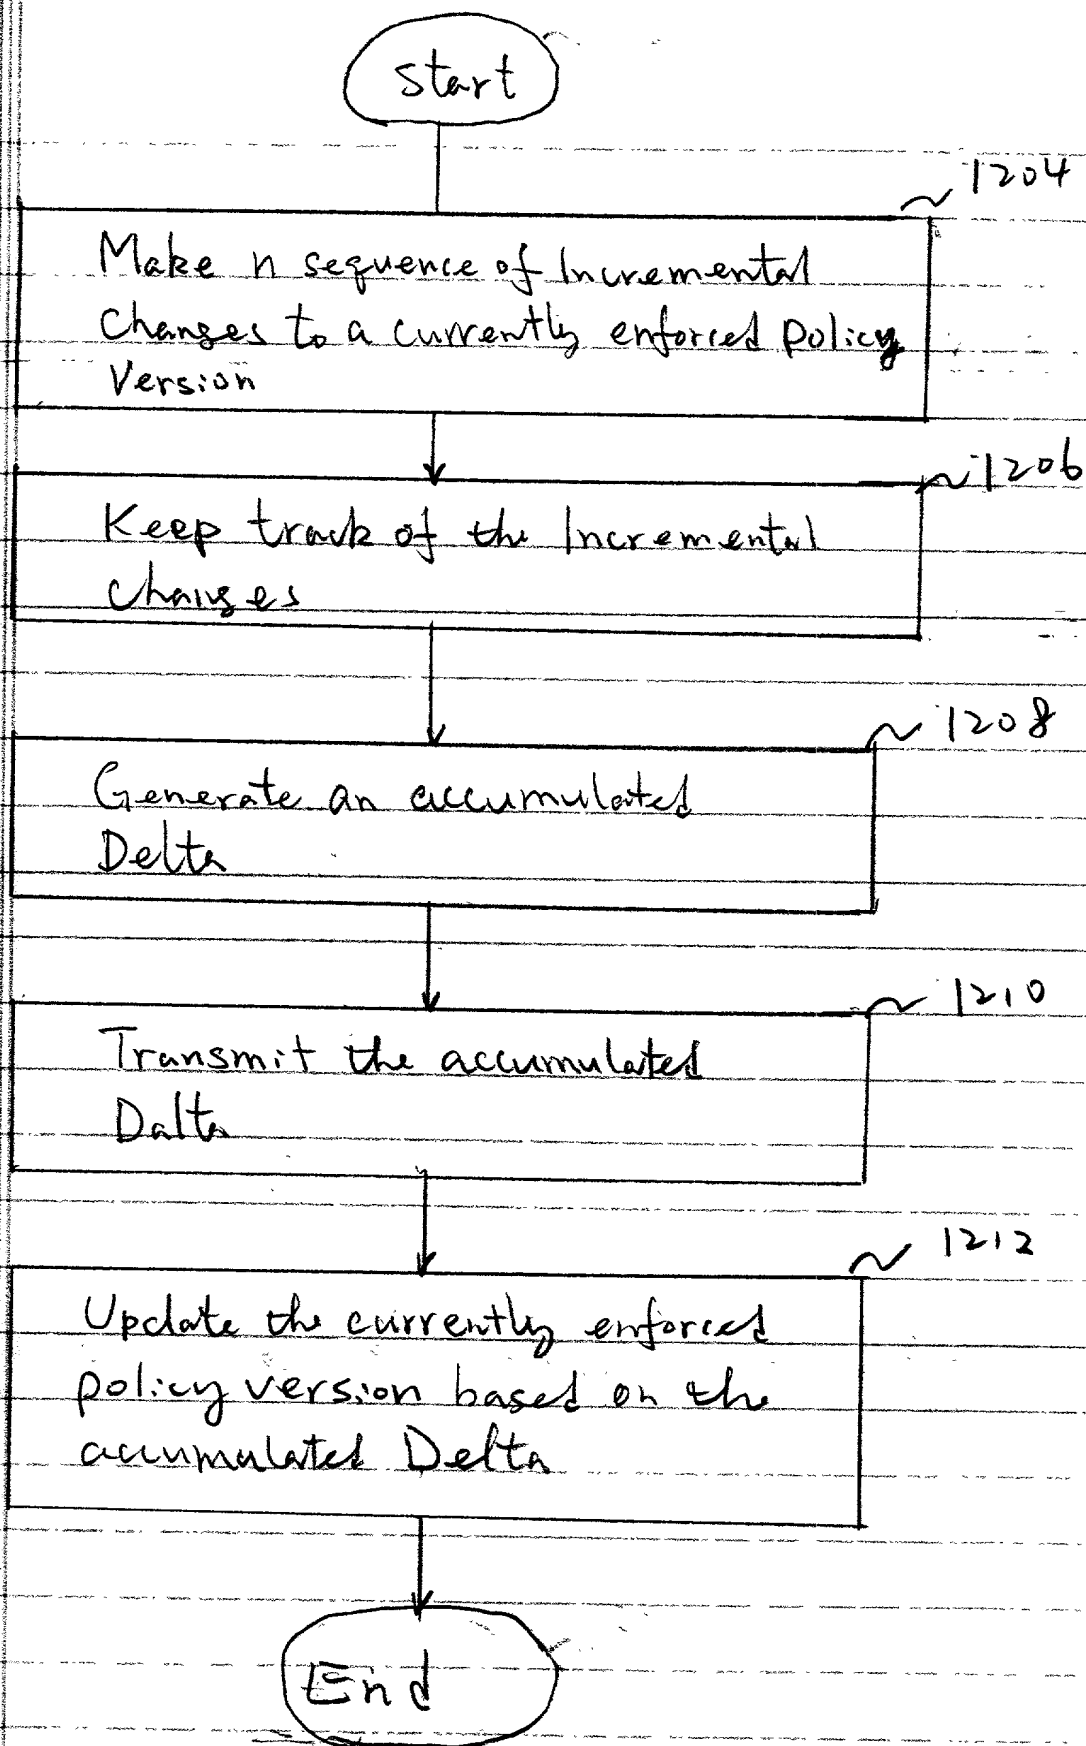 Start
1204
Make n sequence of Incremental
Changes to a currently enforced policy
Version
1206
Keep track of the Incremental
Changes
1208
Generate an accumulated
Delta
1210
Transmit the accumulated
Dalta
1212
Update the currently enforced
policy version based on the
accumulated Delta
End